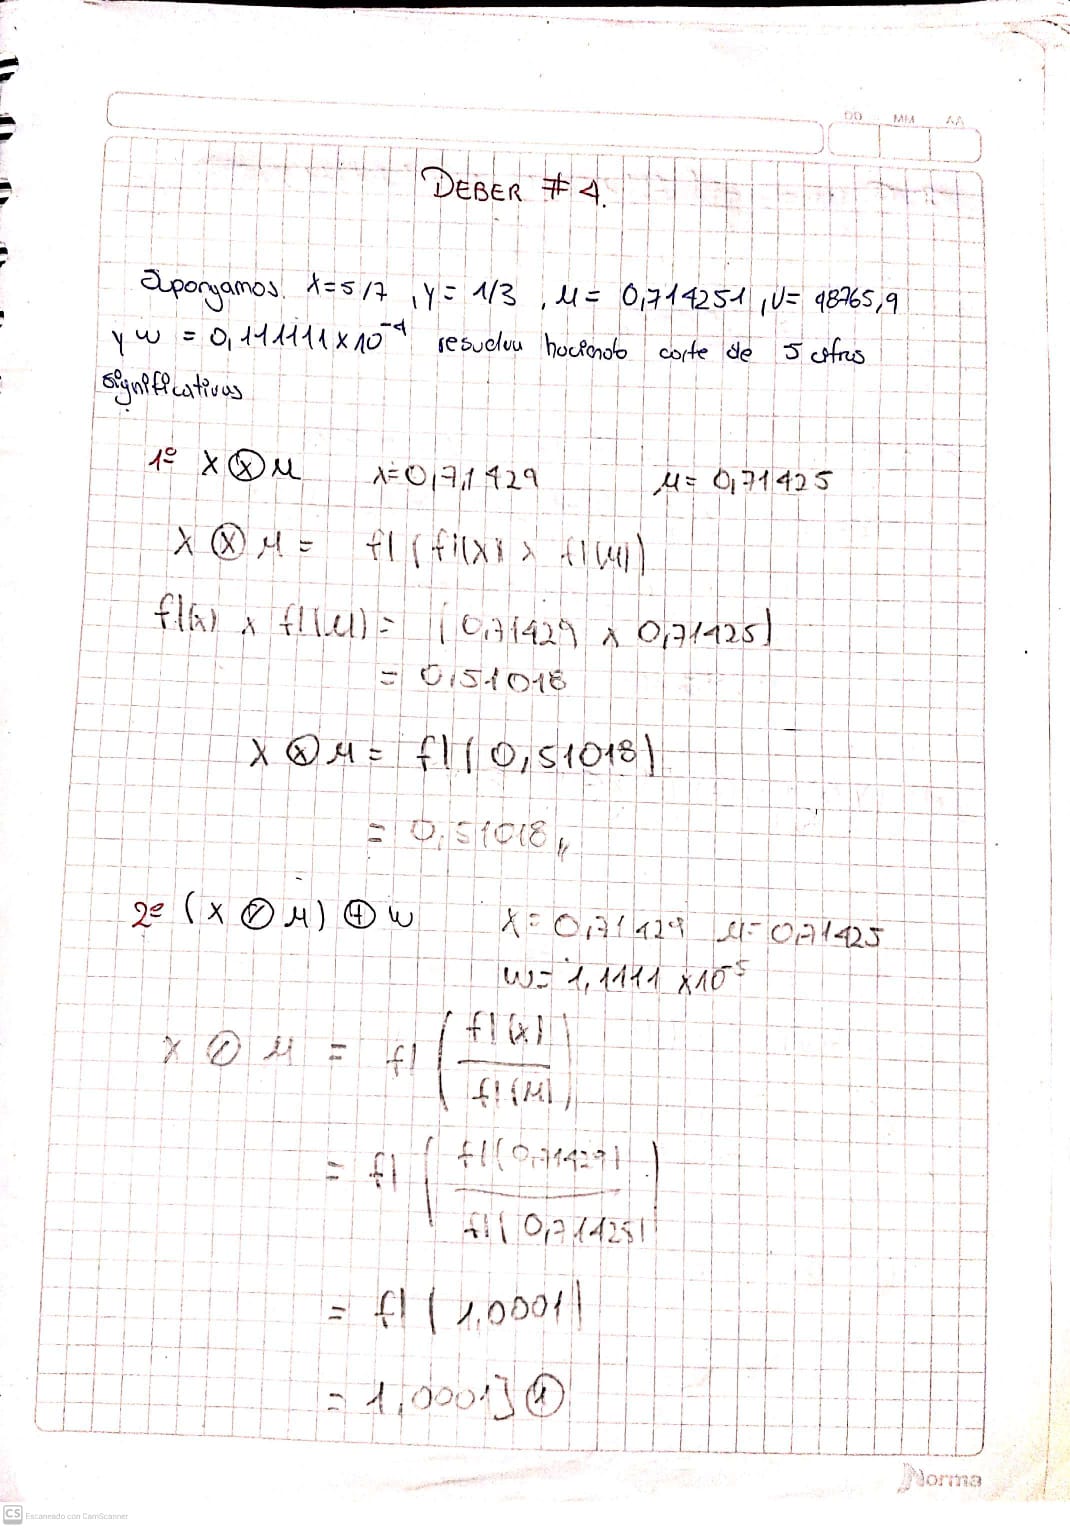 DD MM AA
DEBER # 4.
Supongamos. X=5/7 , Y= 1/3 , μ= 0,714251 , V= 98765,9
y w = 0,111111 x 10⁻⁴ resuelva haciendo corte de 5 cifras
significativas
1º X ⊗ μ X=0,71429 μ= 0,71425
X ⊗ μ = fl ( fl(x) x fl(μ))
fl(x) x fl(μ) = (0,71429 x 0,71425)
= 0,51018
X ⊗ μ = fl ( 0,51018)
= 0,51018 //
2º (X ⊘ μ) ⊕ w X= 0,71429 μ= 0,71425
w= 1,1111 x10⁻⁵
X ⊘ μ = fl ( fl(x) / fl(μ) )
= fl ( fl(0,71429) / fl(0,71425) )
= fl ( 1,0001)
= 1,0001] ①
Norma
CS Escaneado con CamScanner